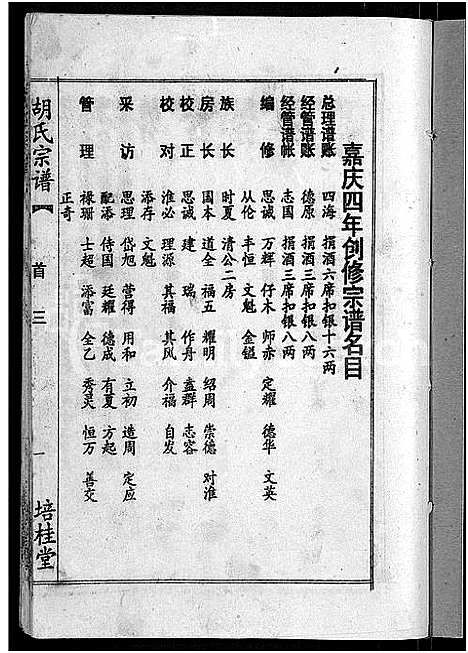 嘉庆四年创修宗谱名目
总理谱账 四海 捐酒六席扣银十六两
经管谱账 德原 捐酒三席扣银八两
经管谱帐 志国 捐酒三席扣银八两
编修 思诚 万辉 仔木 师赤 定耀 德华 文英
从伦 丰恒 文魁 金镒
族长 时夏 清公二房
房长 国本 道全 福五 耀明 绍周 崇德 对淮
校正 思诚 建瑞 作舟 益群 志容
校对 淮必 理源 其福 其风 介福 自发
添存 文魁
采访 思理 岱旭 营得 用和 立初 造周 定应
配添 侍国 廷耀 德成 有夏 方起
管理 禄珊 士超 添富 全乙 秀灵 恒万 善交
正奇
胡氏宗谱【 首 三 一 培桂堂